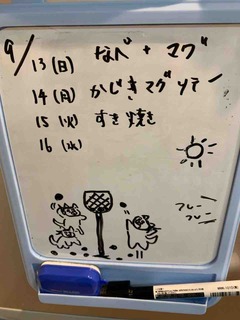 9/
13(日) なべ + マグ
14(月) かじきマグソテー
15(火) すき焼き
16(水)
フレー
フレー